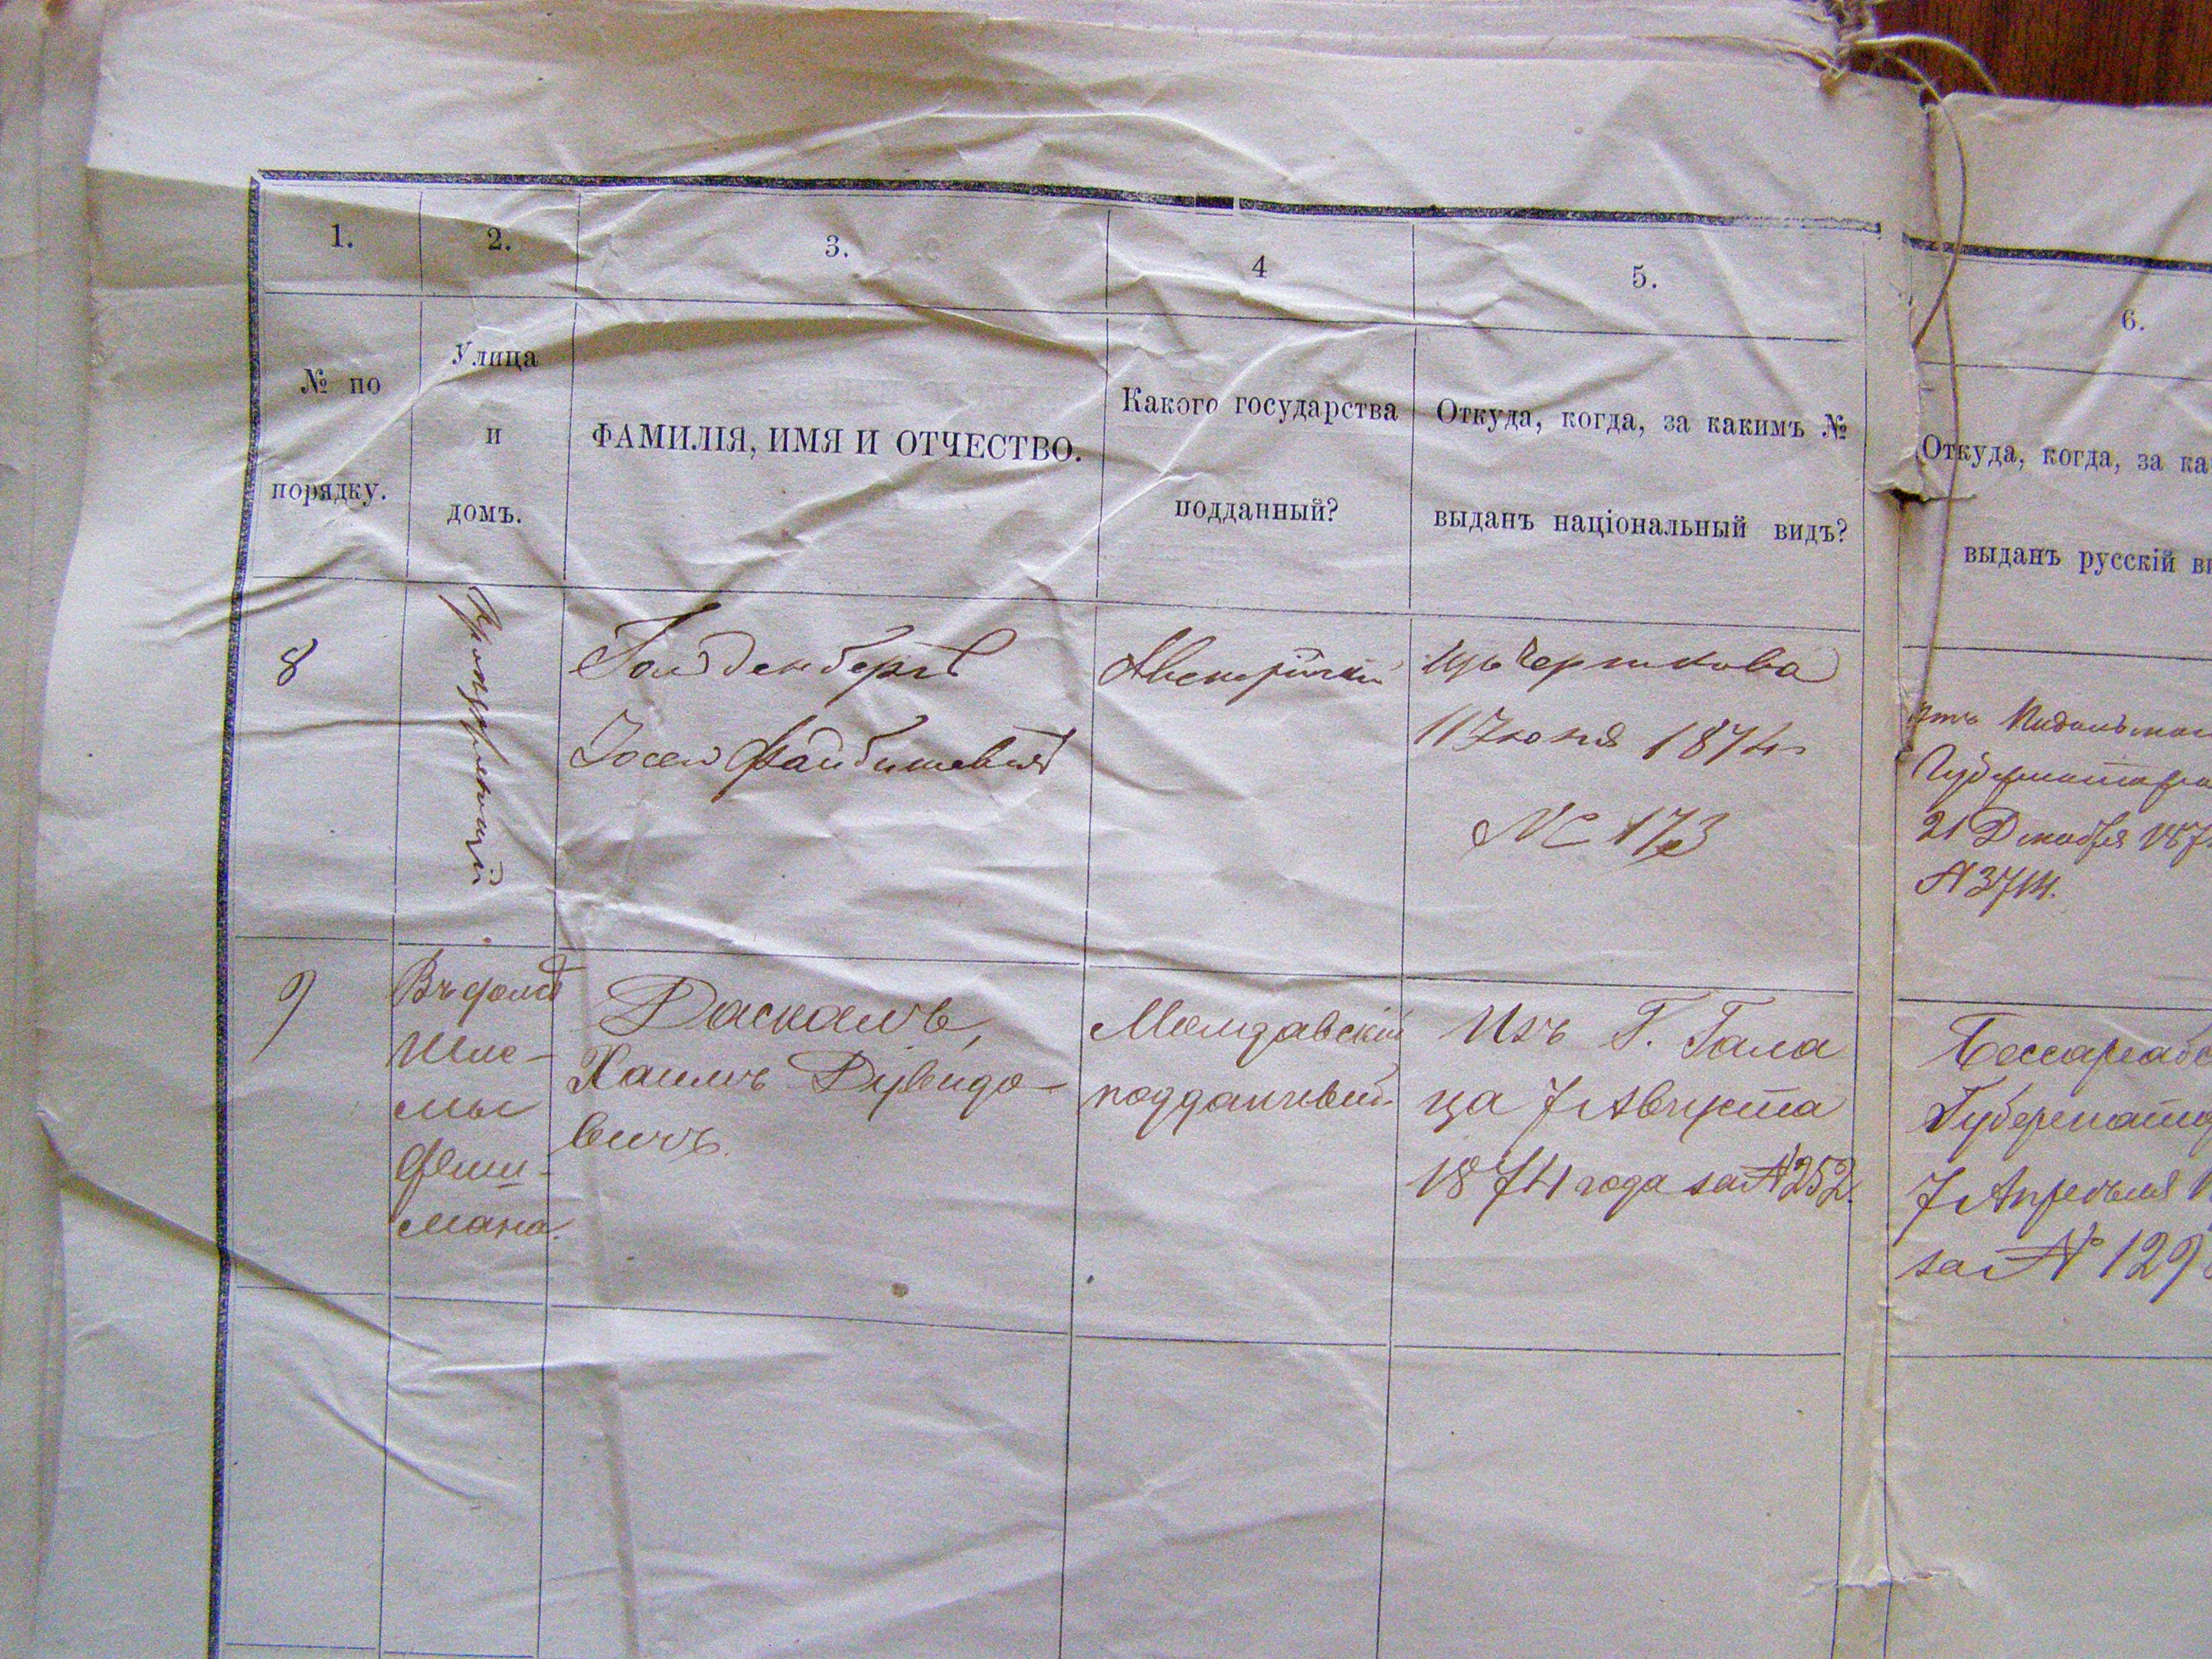 1. 2. 3. 4 5. 6.
№ по
порядку.
Улица
и
домъ.
ФАМИЛІЯ, ИМЯ И ОТЧЕСТВО.
Какого государства
подданный?
Откуда, когда, за какимъ №
выданъ національный видъ?
Откуда, когда, за ка
выданъ русскій ви
8
Голдденбергъ
Іосей Файбишевичъ
Австрійскій
Чорткова
11 Іюня 1874
№ 173
Губернатора
21 Декабря 187
№ 3714.
9
Въ домѣ
Шле-
мы
Фиш-
мана.
Даскалъ,
Хаимъ Дувидо-
вичъ.
Молдавскій
подданный
Изъ Г. Гала
ца 7 Августа
1874 года за № 252.
Бессарабс
Губернато
7 Апрѣля 1
за № 129